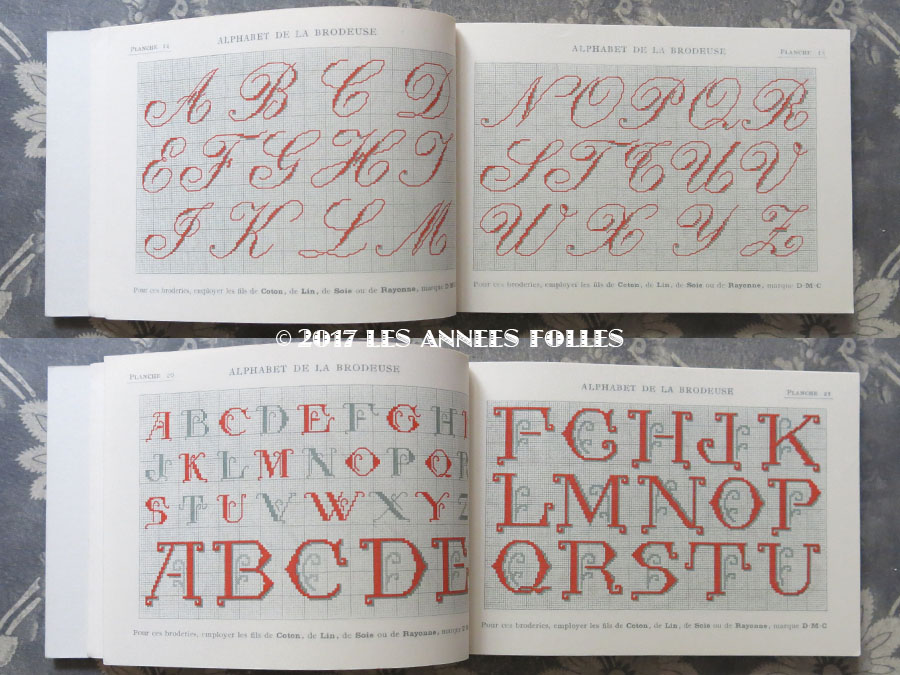 PLANCHE 14
ALPHABET DE LA BRODEUSE
A B C D
E F G H I
J K L M
Pour ces broderies, employer les fils de Coton, de Lin, de Soie ou de Rayonne, marque D·M·C
ALPHABET DE LA BRODEUSE
N O P Q R
S T T U V
W X Y Z
Pour ces broderies, employer les fils de Coton, de Lin, de Soie ou de Rayonne, marque D·M·C
© 2017 LES ANNEES FOLLES
PLANCHE 20
ALPHABET DE LA BRODEUSE
A B C D E F G H
J K L M N O P Q R
S T U V W X Y Z
A B C D E
Pour ces broderies, employer les fils de Coton, de Lin, de Soie ou de Rayonne, marque D·M·C
ALPHABET DE LA BRODEUSE
F G H J K
L M N O P
Q R S T U
Pour ces broderies, employer les fils de Coton, de Lin, de Soie ou de Rayonne, marque D·M·C